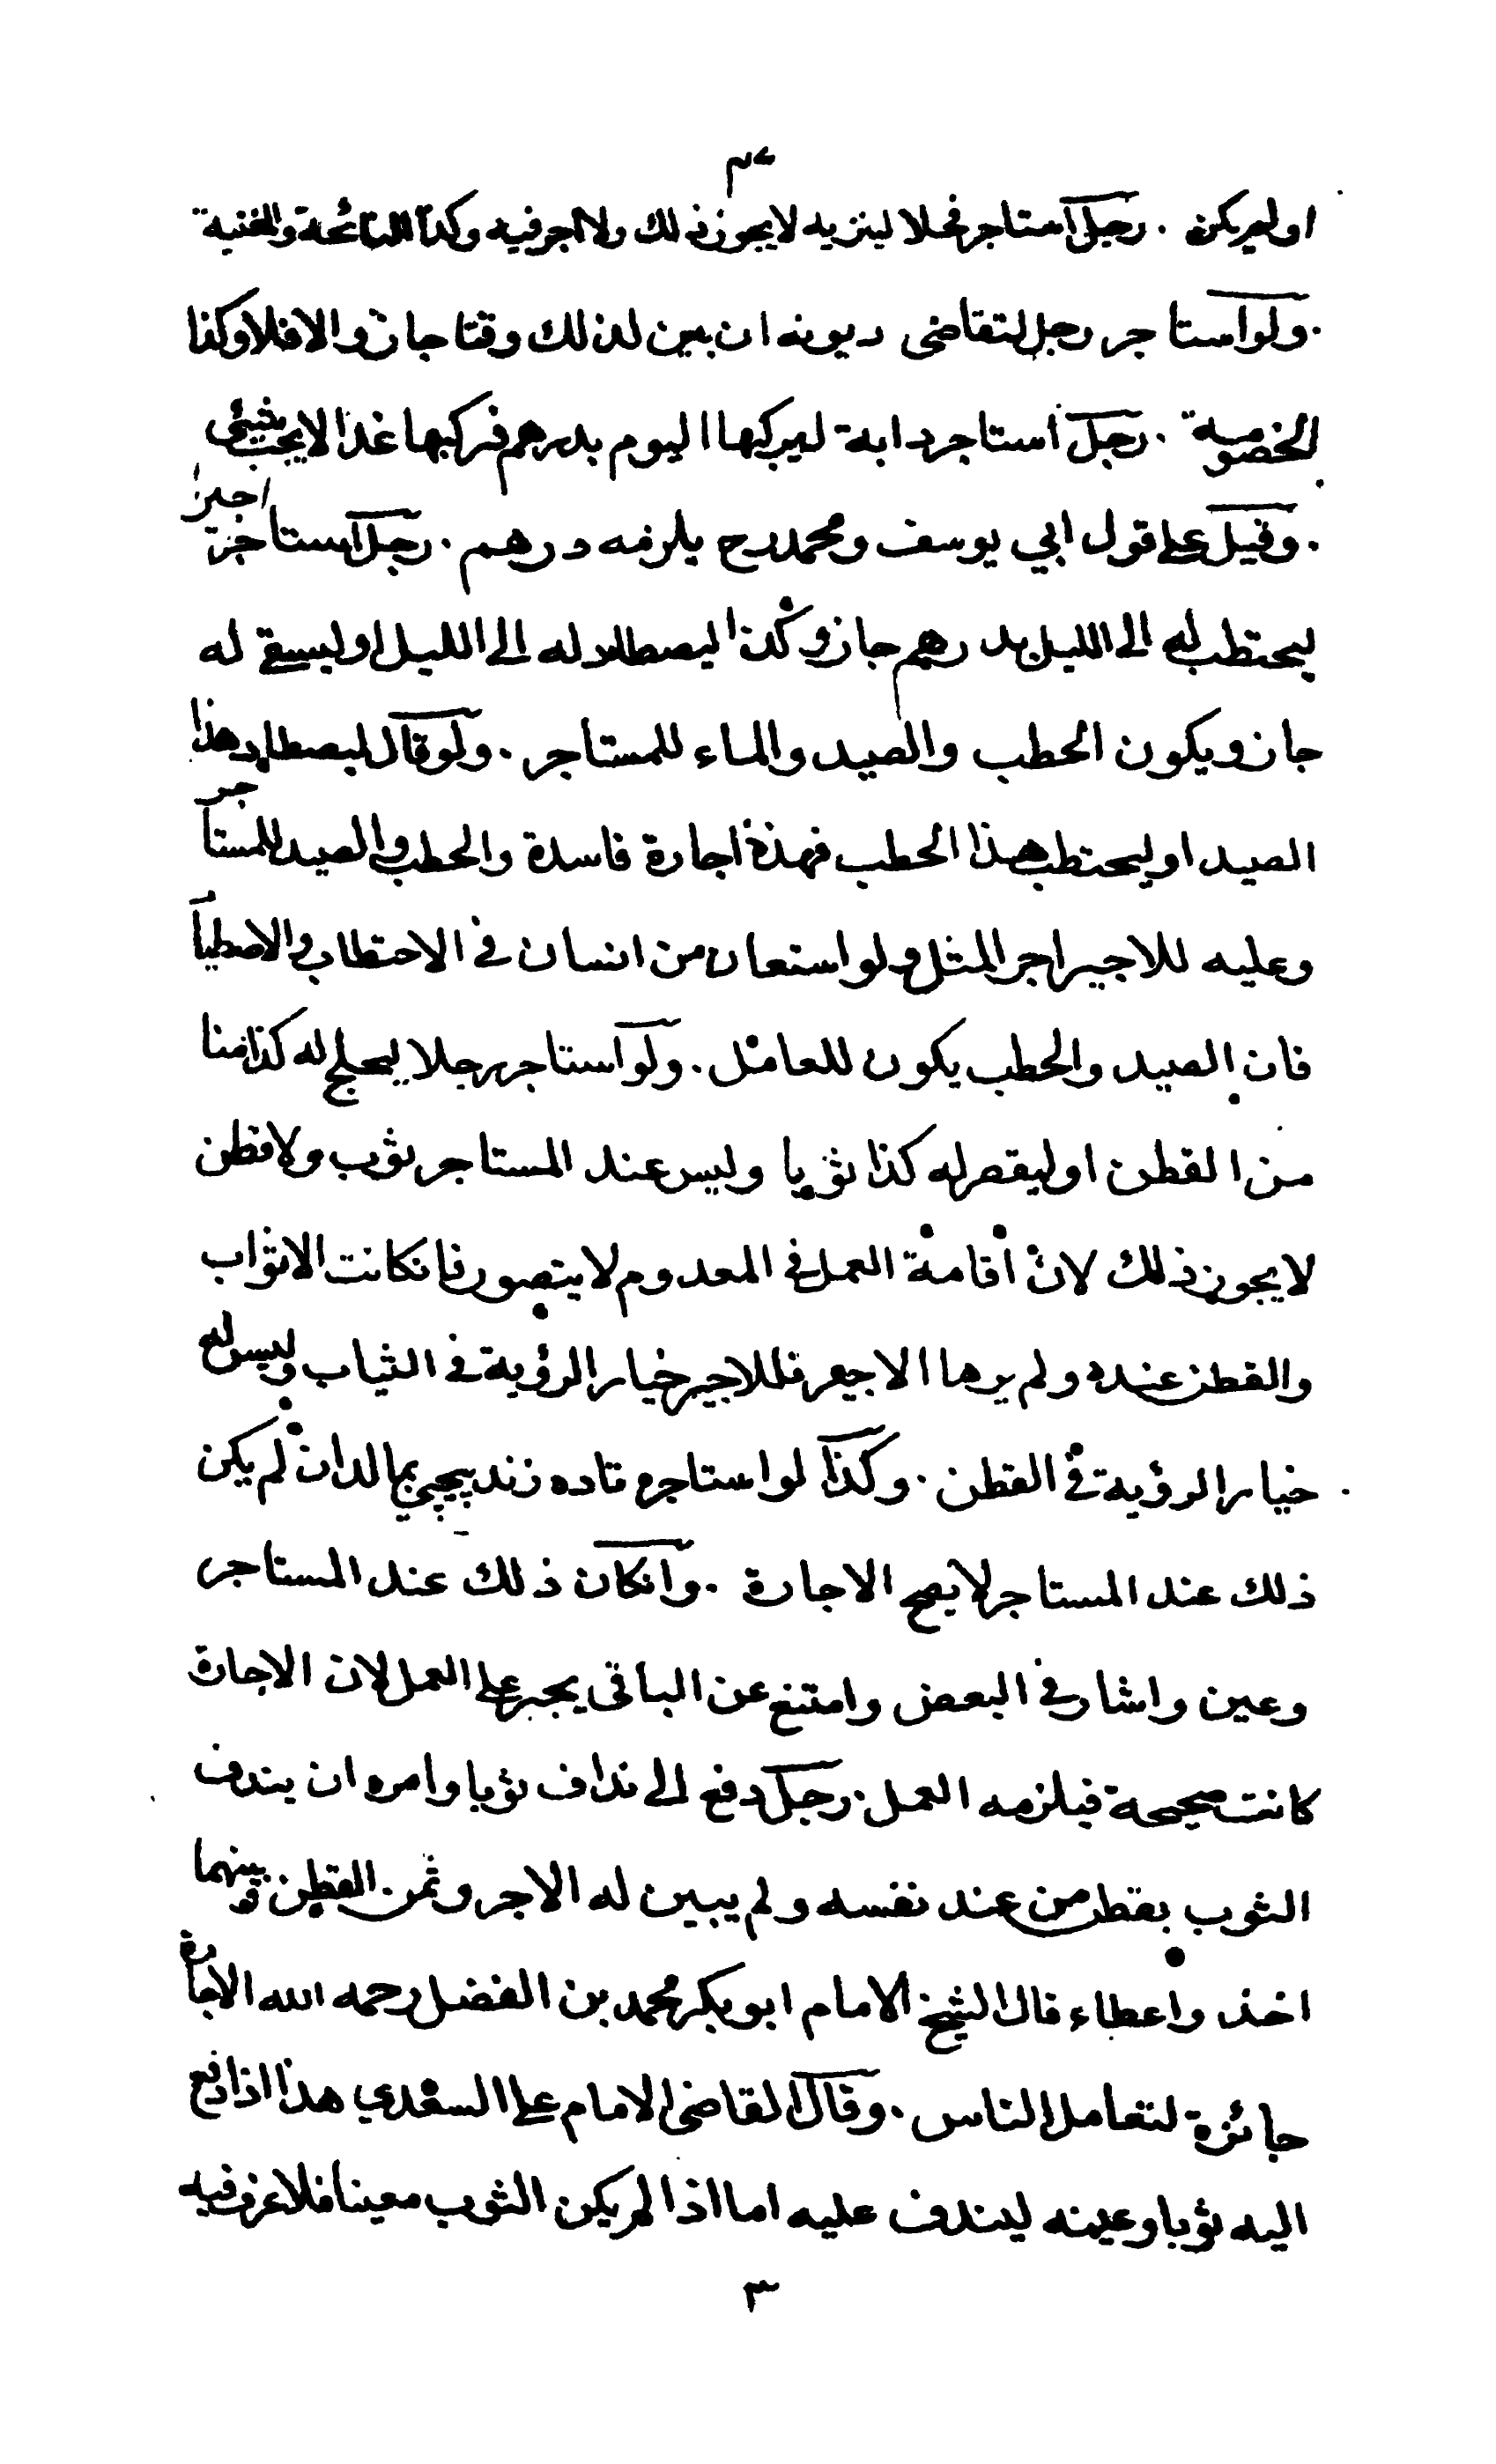 ٣٤
او لم يكن . رجل استاجر فحلا لينزيه لا يجوز ذلك ولا اجر فيه وكذا النائحة والمغنية
. ولو استاجر رجل لتقاضى ديونه ان بين لذلك وقتا جاز والا فلا وكذا
الخصومة . رجل استاجر دابة ليركبها اليوم بدرهم فركبها غدا لا يجب شيئ
. وقيل على قول ابي يوسف ومحمد رح يلزمه درهم . رجل استاجر اجيرا
ليحتطب له الى الليل بدرهم جاز وكذا ليصطاد له الى الليل او ليسقي له
جاز ويكون الحطب والصيد والماء للمستاجر . ولو قال ليصطاد هذا
الصيد او ليحتطب هذا الحطب فهذة اجارة فاسدة والحطب والصيد للمستاجر
وعليه للاجير اجر المثل ولو استعان من انسان في الاحتطاب والاصطياد
فان الصيد والحطب يكون للعامل . ولو استاجر رجلا ليحلج له كذا منا
من القطن او ليقصر له كذا ثوبا وليس عند المستاجر ثوب ولا قطن
لا يجوز ذلك لان اقامة العمل في المعدوم لا يتصور فانكانت الاثواب
والقطن عنده ولم يرها الاجير فللاجير خيار الرؤية في الثياب وليس له
خيار الرؤية في القطن . وكذا لو استاجره تاده زند پيچي بمالد ان لم يكن
ذلك عند المستاجر لا يصح الاجارة . وانكان ذلك عند المستاجر
وعين واشار في البعض وامتنع عن الباقى يجبر على العمل لان الاجارة
كانت صحيحة فيلزمه العمل . رجل دفع الى نداف ثوبا وامره ان يندف
الثوب بقطن من عند نفسه ولم يبين له الاجر وثمن القطن وبينهما
اخذ واعطاء قال الشيخ الامام ابو بكر محمد بن الفضل رحمه الله الاجارة
جائزة لتعامل الناس . وقال القاضى الامام على السغدي هذا اذا دفع
اليه ثوبا وعينه ليندف عليه اما اذا لم يكن الثوب معينا فلا عرف فيه
٣